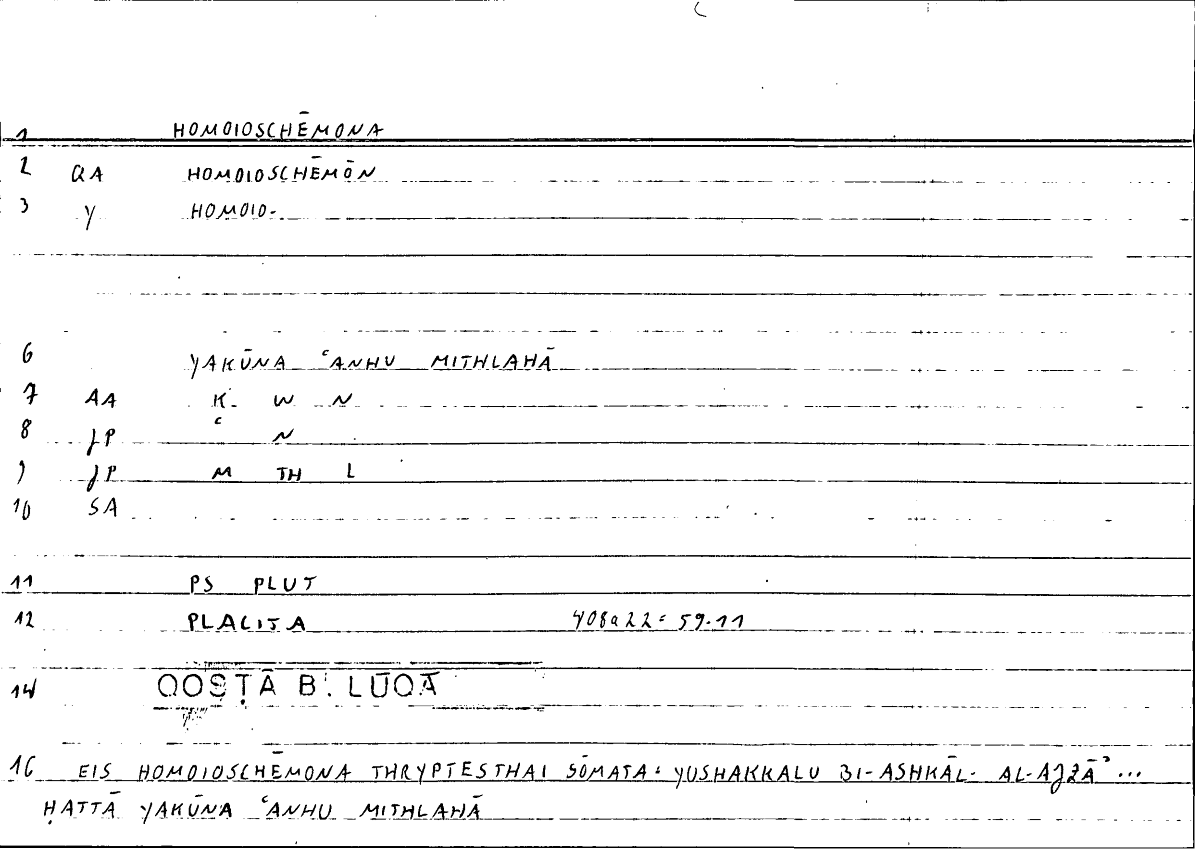 1 HOMOIOSCHĒMONA
2 QA HOMOIOSCHĒMŌN
3 Y HOMOIO-
6 YAKŪNA ʿANHU MITHLAHĀ
7 AA K W N
8 JP ʿ N
9 JP M TH L
10 SA
11 PS PLUT
12 PLACITA 408a22 = 59.11
14 QOSṬĀ B. LŪQĀ
16 EIS HOMOIOSCHĒMONA THRYPTESTHAI SŌMATA = YUSHAKKALU BI-ASHKĀL- AL-AJZĀʾ ...
ḤATTĀ YAKŪNA ʿANHU MITHLAHĀ